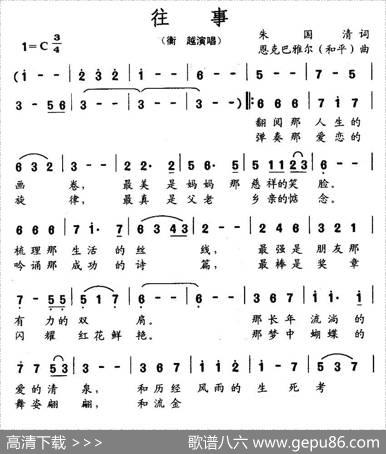 往 事
1=C 3/4
（衡 越演唱）
朱 国 清 词
恩克巴雅尔（和平）曲
( i - - | 2 3 2 | i - - | 6 - - | 5 - - | 5 - - |
3 - 5 6 | 3 - - | 3 - - | 3 - - ) ‖: 6 6 6 | 7 i 7 |
翻阅那 人生的
弹奏那 爱恋的
6 3 2 | 3 - - | 2 2 · 2 | 2 5 6 · | 5 1 1 2 3 | 3 - - |
画 卷， 最美是 妈妈 那 慈祥的笑 脸。
旋 律， 最真是 父老 乡亲的惦 念。
6 6 6 | 7 i · 7 | 6 3 4 3 | 3 - - | 2 4 6 | 3 2 1 |
梳理那 生活 的 丝 线， 最强是 朋友那
吟诵那 成功 的 诗 篇， 最棒是 奖章
7 - 5 5 | 5 1 7 | 6 - - | 6 - - | 3 6 7 | i i · i |
有 力的 双 肩。 那长年 流淌 的
闪 耀 红花鲜 艳。 那梦中 蝴蝶 的
7 7 5 3 | 3 - - | 3 6 7 | i i 2 | i 0 7 | 5 3 7 |
爱的清 泉， 和历经 风雨的 生 死 考
舞姿翩 翩， 和流金
高清下载 >>>
歌谱八六 www.gepu86.com